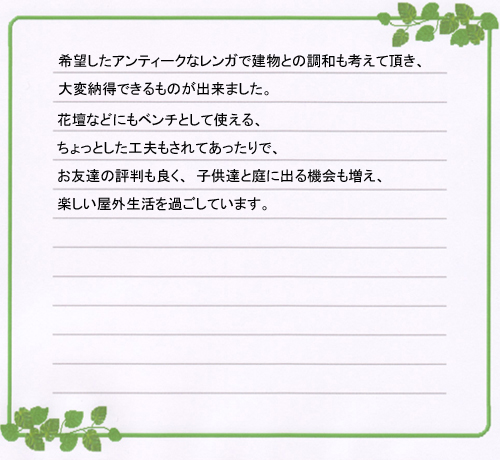 希望したアンティークなレンガで建物との調和も考えて頂き、
大変納得できるものが出来ました。
花壇などにもベンチとして使える、
ちょっとした工夫もされてあったりで、
お友達の評判も良く、子供達と庭に出る機会も増え、
楽しい屋外生活を過ごしています。